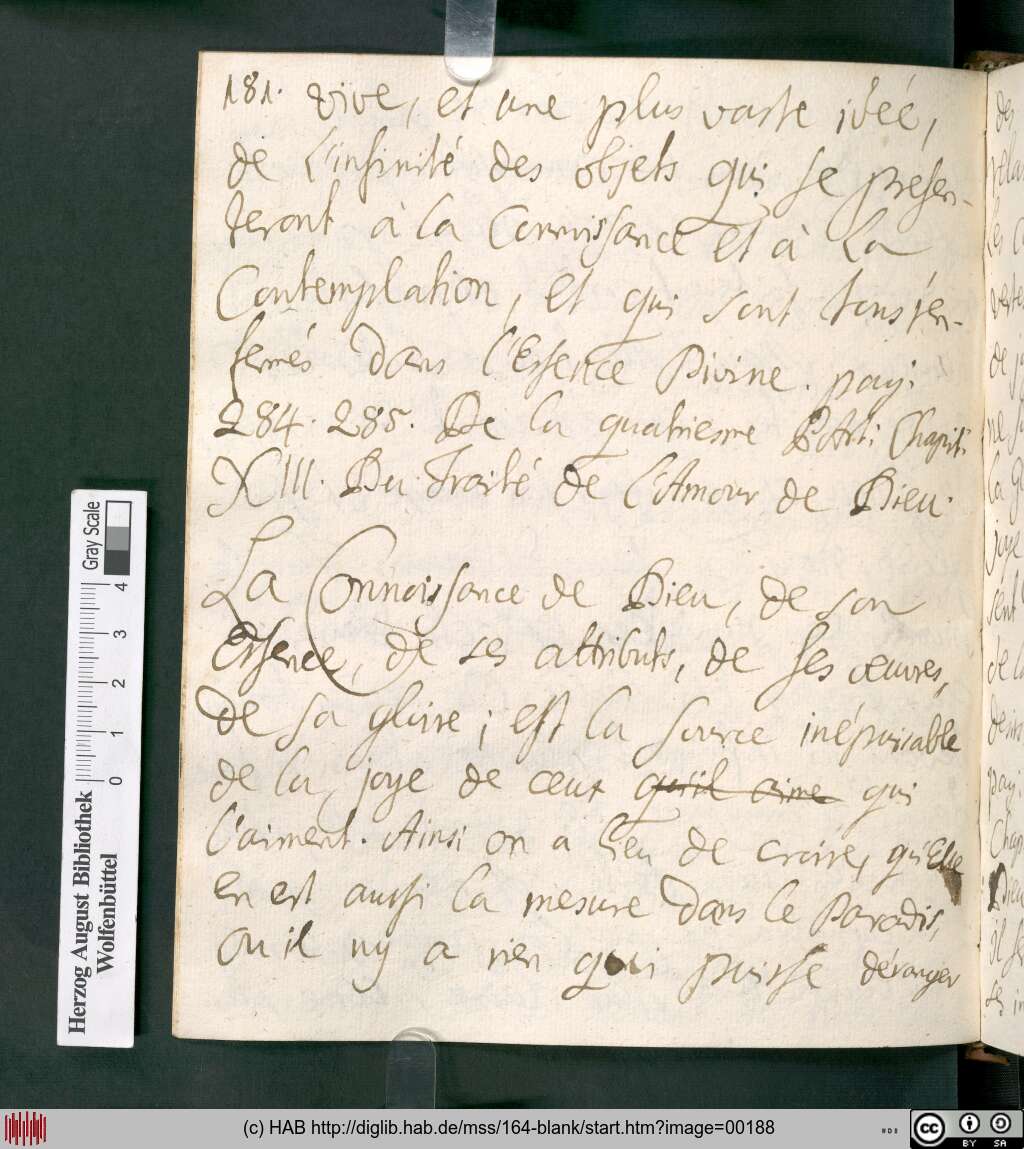 181. vive, et une plus vaste idéé,
de l'infinité des objets qui se presen-
teront à la Connoissance et à la
Contemplation, et qui sont tous ren-
fermés dans l'Essence Divine. pag:
284. 285. De la quatriesme Part: Chapit:
XIII. Du Traité de l'Amour de Dieu.
La Connoissance de Dieu, de son
Essence, de ses attributs, de ses œuvres,
de sa gloire; est la source inépuisable
de la joye de ceux qu'il aime qui
l'aiment. Ainsi on a lieu de croire, qu'Elle
en est aussi la mesure dans le Paradis,
ou il ny a rien qui puisse déranger
Herzog August Bibliothek
Wolfenbüttel
Gray Scale
0 1 2 3 4
(c) HAB http://diglib.hab.de/mss/164-blank/start.htm?image=00188
cc BY SA